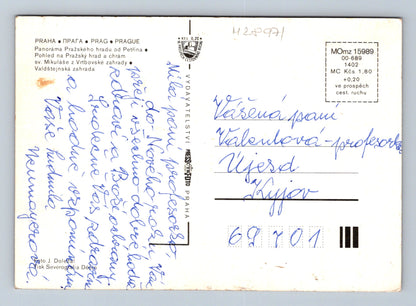 M28971
PRAHA • ПРАГА • PRAG • PRAGUE
Panorama Pražského hradu od Petřína
Pohled na Pražský hrad a chrám
sv. Mikuláše z Vrtbovské zahrady
Valdštejnská zahrada
Milá paní profesorko,
do Nového roku Vám
přeji všechno dobré, hodně
zdraví a Boží ochranu.
Srdečně Vás zdraví
a hodně vzpomíná
Vaše
Neumayerová
Foto J. Doležal
Tisk Severografia Děčín
VYDAVATELSTVÍ
PRAHA
MOmz 15989
00-689
1402
MC Kčs 1,80
+0,20
ve prospěch
cest. ruchu
Vážená paní
Valentová-profesorka
Újezd
Kyjov
69701